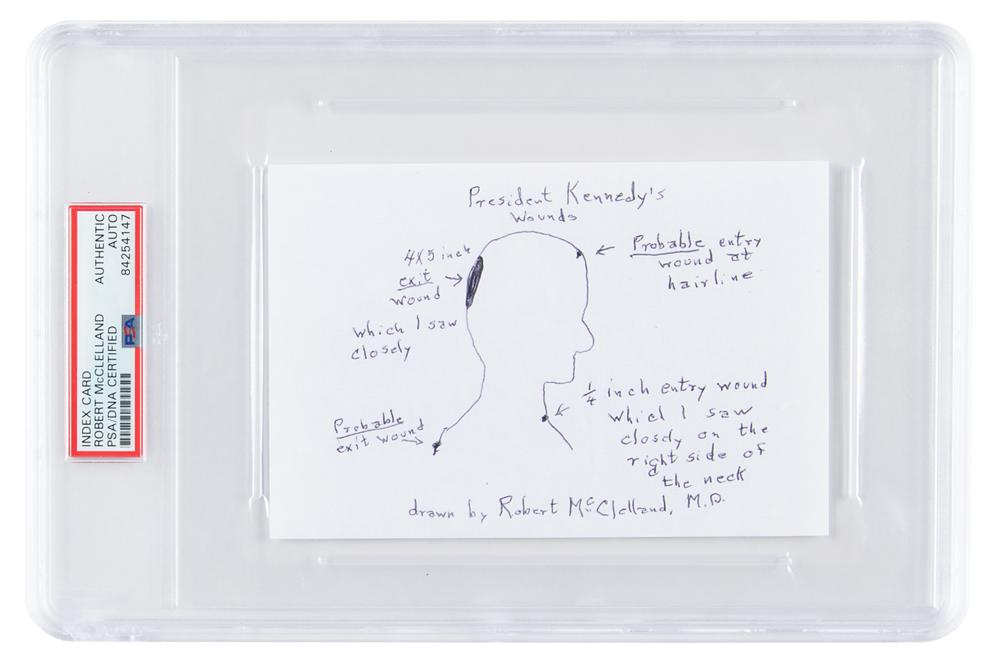 INDEX CARD
ROBERT McCLELLAND
PSA/DNA CERTIFIED
AUTHENTIC
AUTO
84254147
PSA
President Kennedy's
Wounds
4X5 inch
exit
wound
which I saw
closely
Probable entry
wound at
hairline
Probable
exit wound
1/4 inch entry wound
which I saw
closely on the
right side of
the neck
drawn by Robert McClelland, M.D.